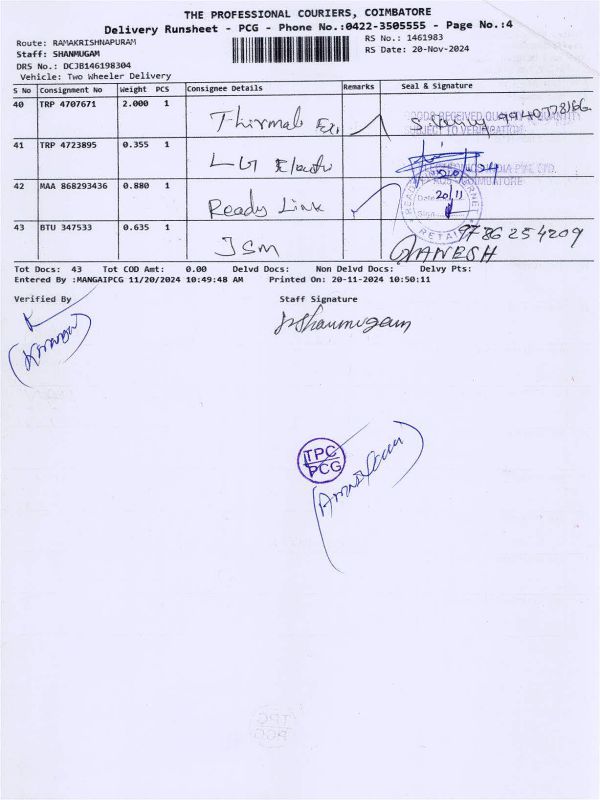 THE PROFESSIONAL COURIERS, COIMBATORE
Delivery Runsheet - PCG - Phone No.:0422-3505555 - Page No.:4
Route: RAMAKRISHNAPURAM
RS No.: 1461983
Staff: SHANMUGAM
RS Date: 20-Nov-2024
DRS No.: DCJB146198304
Vehicle: Two Wheeler Delivery
S No Consignment No Weight PCS Consignee Details Remarks Seal & Signature
40 TRP 4707671 2.000 1 Thirmal
GOODS RECEIVED
SUBJECT TO VERIFICATION
41 TRP 4723895 0.355 1 LG
COIMBATORE
42 MAA 868293436 0.880 1 Ready Link
Date 20/11
Sign
RETAIL
43 BTU 347533 0.635 1 JSM 9786254209
GANESH
Tot Docs: 43 Tot COD Amt: 0.00 Delvd Docs: Non Delvd Docs: Delvy Pts:
Entered By :MANGAIPCG 11/20/2024 10:49:48 AM Printed On: 20-11-2024 10:50:11
Verified By Staff Signature
Shanmugam
TPC
PCG
TPC
PCG